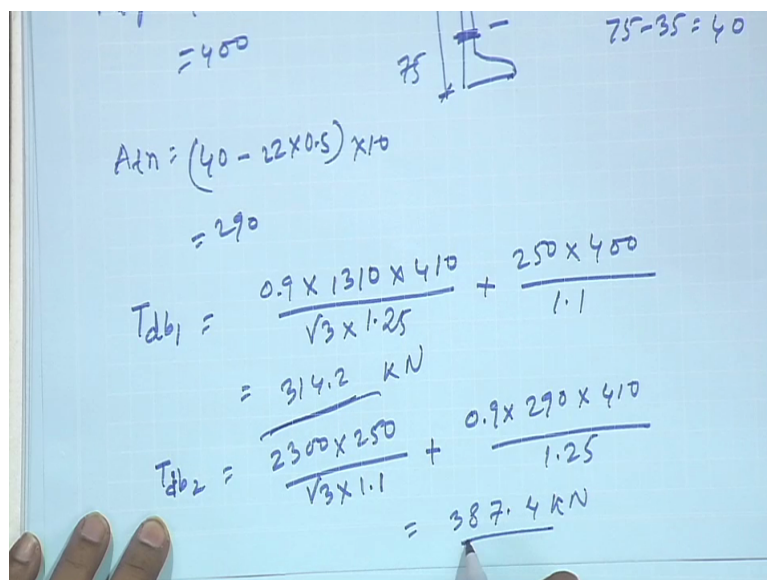 = 400
75
75-35 = 40
Atn = (40 - 22×0.5) ×10
= 290
Tdb1 = 0.9 × 1310 × 410 / √3 × 1.25 + 250 × 400 / 1.1
= 314.2 KN
Tdb2 = 2300 × 250 / √3 × 1.1 + 0.9 × 290 × 410 / 1.25
= 387.4 KN